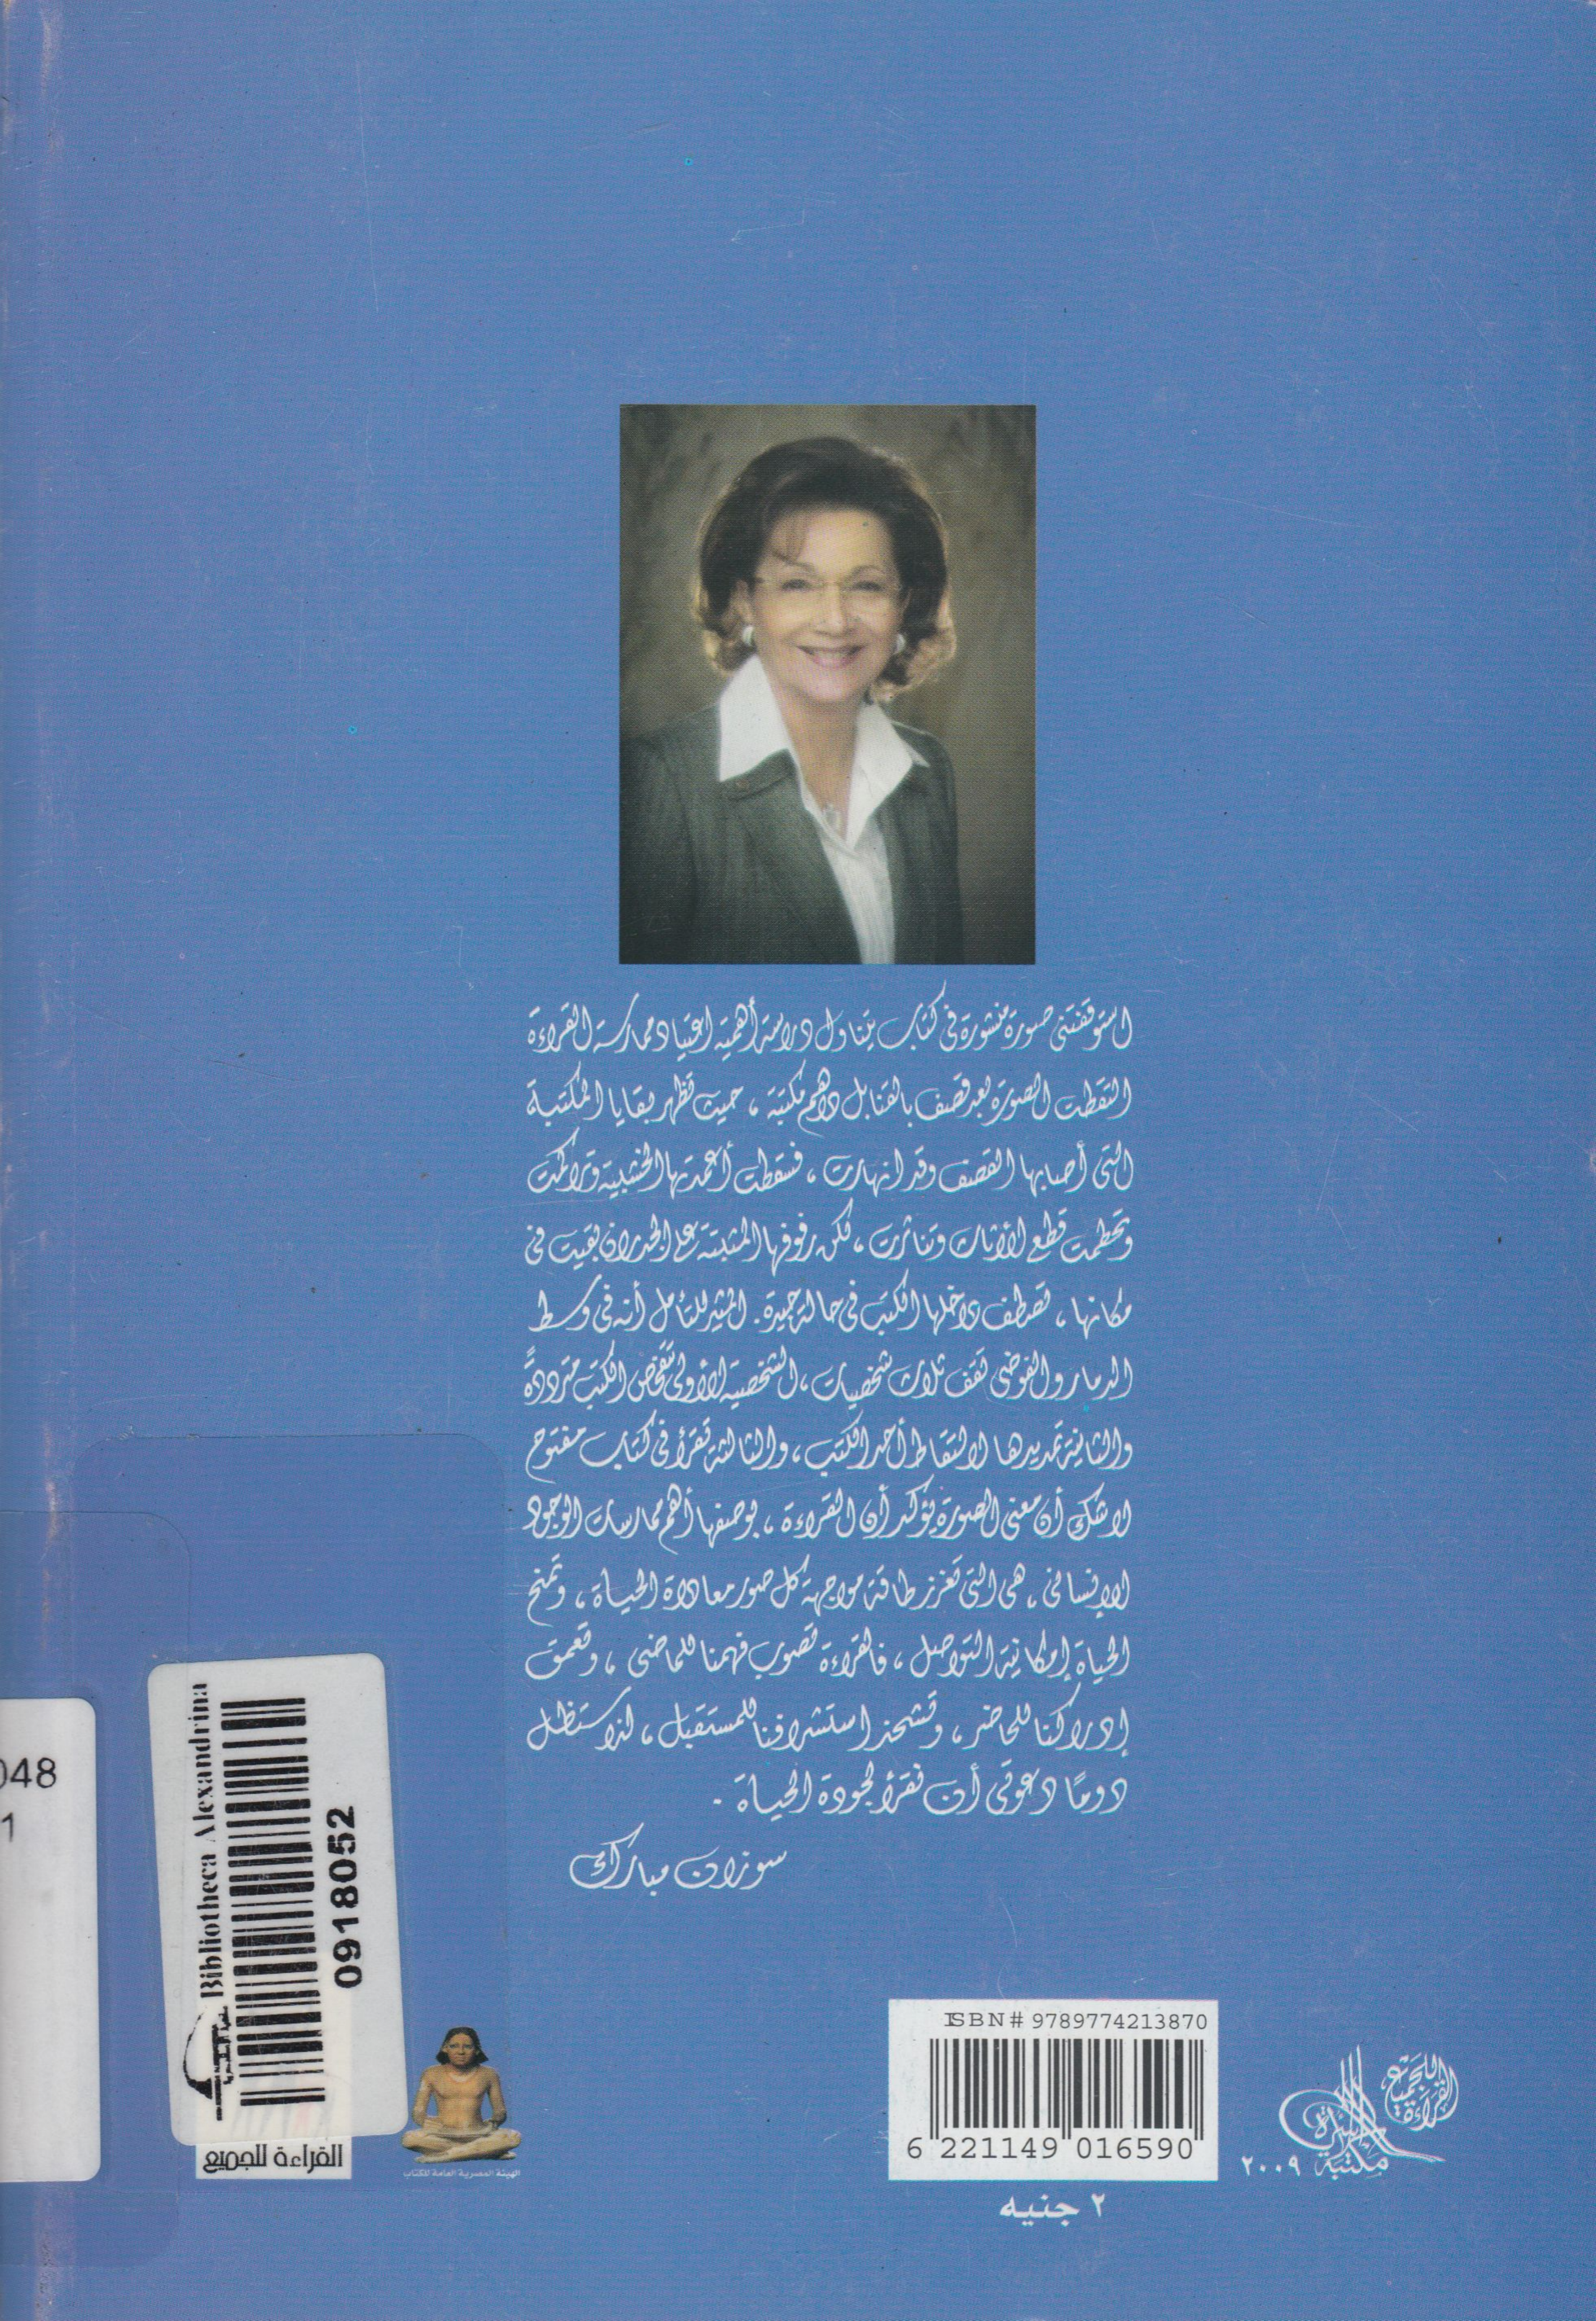 استوقفتنى صورة منشورة فى كتاب يتناول دراسة أهمية اعتياد ممارسة القراءة
التقطت الصورة بعد قصف بالقنابل داهم مكتبة ، حيث تظهر بقايا المكتبة
التى أصابها القصف وقد انهارت ، فسقطت أعمدتها الخشبية وتراكمت
وتحطمت قطع الأثاث وتناثرت ، لكن رفوفها المثبتة على الجدران بقيت فى
مكانها ، تصطف داخلها الكتب فى حالة جيدة . المثير للتأمل أنه فى وسط
الدمار والفوضى تقف ثلاث شخصيات ، الشخصية الأولى تتفحص الكتب مترددة
والثانية تمد يدها لالتقاط أحد الكتب ، والثالثة تقرأ فى كتاب مفتوح
لا شك أن معنى الصورة يؤكد أن القراءة ، بوصفها أهم ممارسات الوجود
الإنسانى ، هى التى تعزز طاقة مواجهة كل صور معاداة الحياة ، وتمنح
الحياة إمكانية التواصل ، فالقراءة تصوب فهمنا للماضى ، وتعمق
إدراكنا للحاضر ، وتشحذ استشرافنا للمستقبل ، لذا ستظل
دومًا دعوتى أن نقرأ لجودة الحياة .
سوزان مبارك
048
1
Bibliotheca Alexandrina
0918052
القراءة للجميع
الهيئة المصرية العامة للكتاب
ISBN# 9789774213870
6 221149 016590
٢ جنيه
القراءة للجميع
مكتبة الأسرة
٢٠٠٩